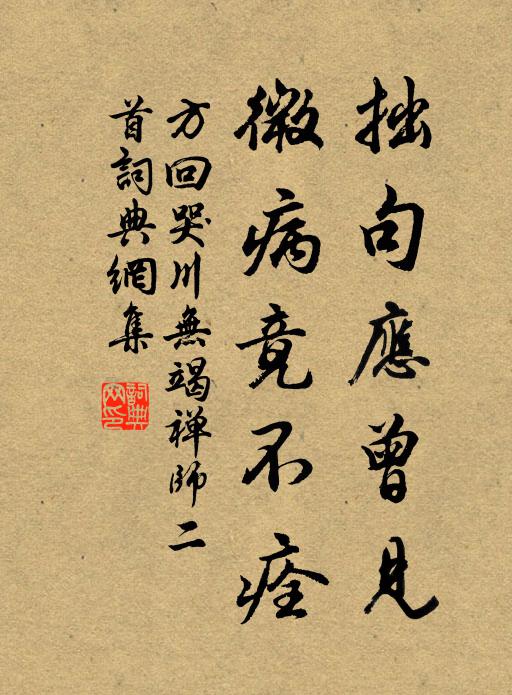 拙句應曾見
微病竟不痊
方回哭川無竭禅師二
首詞典網集
詞典
网印